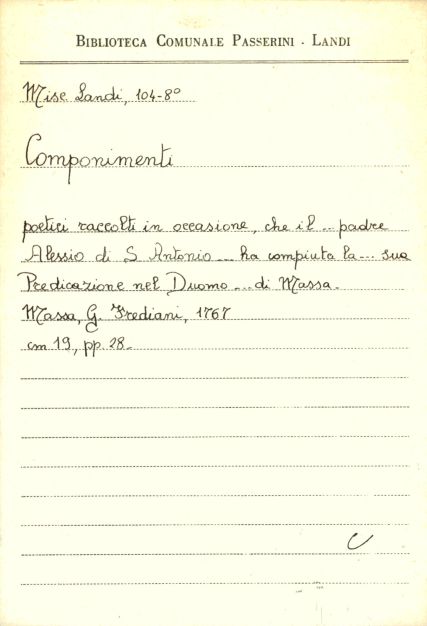 BIBLIOTECA COMUNALE PASSERINI - LANDI
Misc Landi, 104-8°
Componimenti
poetici raccolti in occasione, che il ... padre
Alessio di S Antonio ... ha compiuta la ... sua
Predicazione nel Duomo ... di Massa.
Massa, G. Frediani, 1767
cm 19, pp. 28.
C